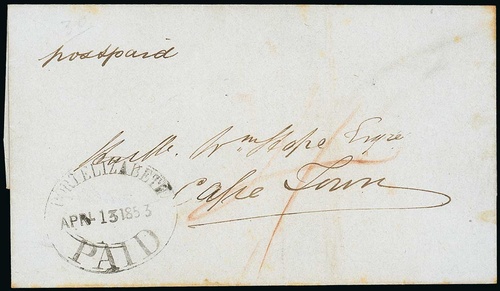 postpaid
Honble. Wm Hope Esqre
Cape Town
PORT ELIZABETH
APR 13 1853
PAID
4